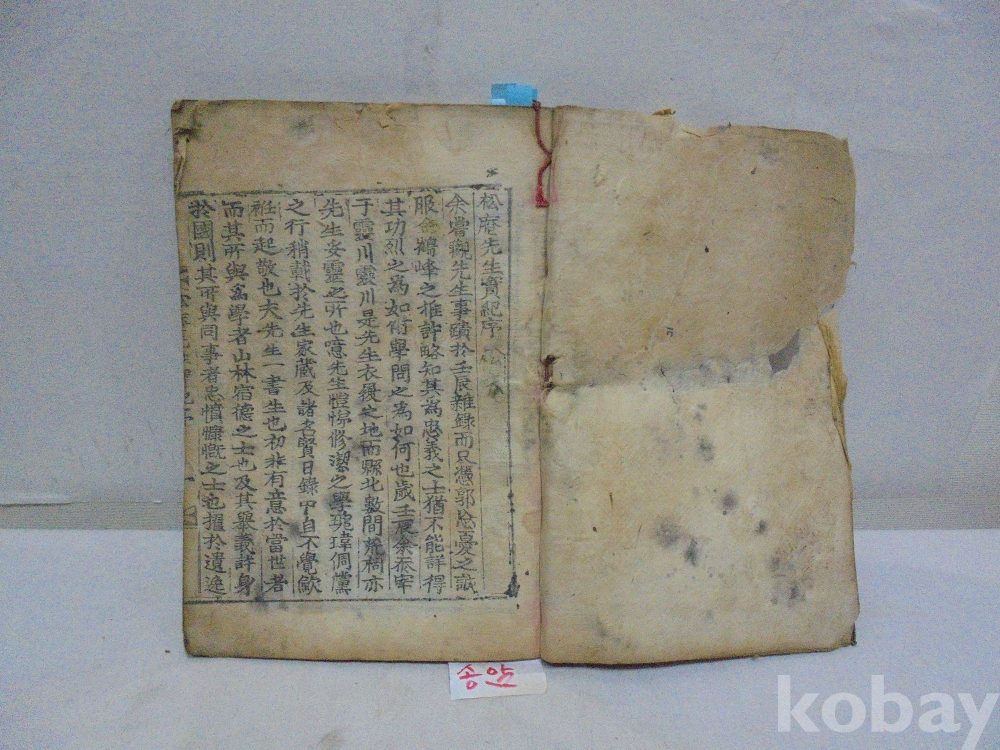 松庵先生實紀序
余嘗觀先生事蹟於壬辰雜錄而只憑郭忘憂之識
服金鶴峰之推許略知其爲忠義之士猶不能詳得
其功烈之爲如何學問之爲如何也歲壬辰余忝宰
于靈川靈川是先生衣後之地而縣北數間荒祠亦
先生妥靈之所也噫先生愷悌修潔之學瑰瑋倜儻
之行稍載於先生家藏及諸名賢日錄中自不覺歛
袵而起敬也夫先生一書生也初非有意於當世者
而其所與爲學者山林宿德之士也及其擧義許身
於國則其所與同事者忠憤慷慨之士也擢於遺逸
송암
kobay